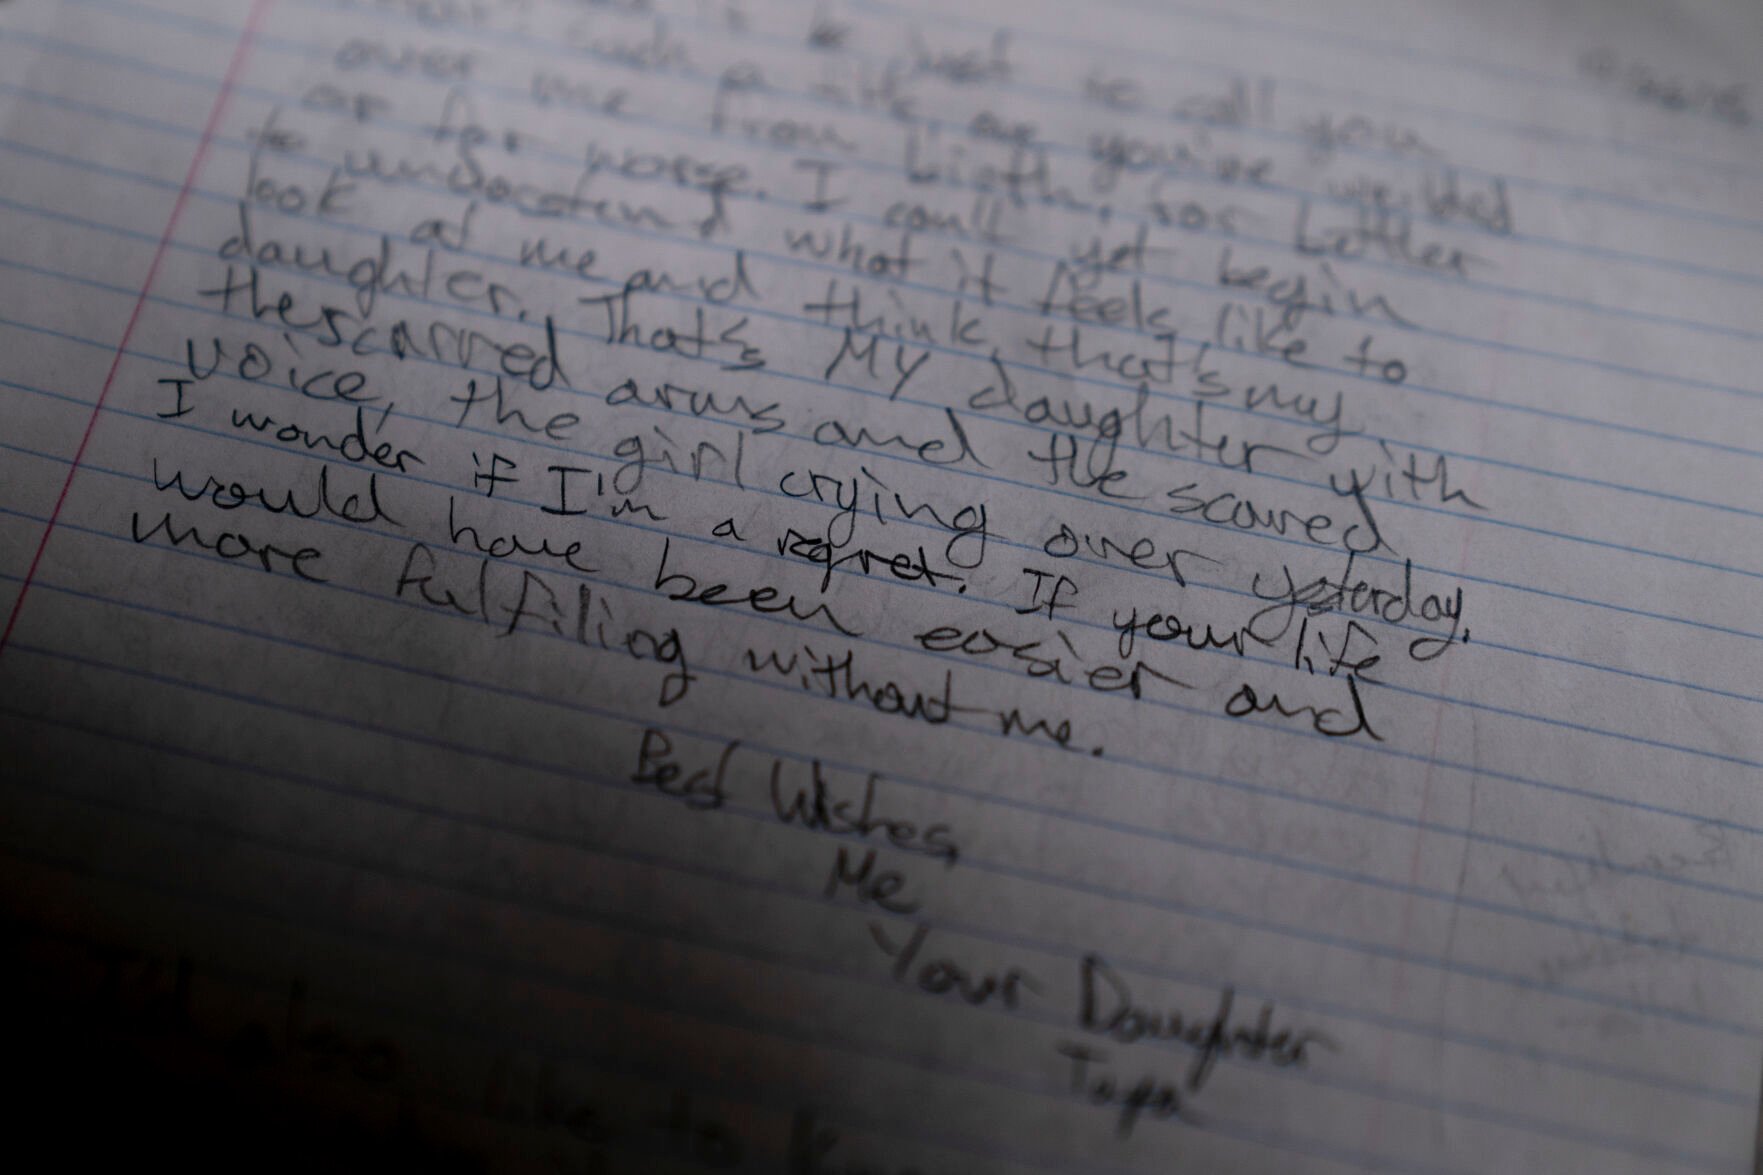 just
call you
over such a life as you've welded
or me from birth, for better
for worse. I can't yet begin
to understand what it feels like to
look at me and think, that's my
daughter. That's MY daughter with
the scarred arms and the scared
voice, the girl crying over yesterday.
I wonder if I'm a regret. If your life
would have been easier and
more fulfiling without me.
Best Wishes,
Me
Your Daughter
I'd also like to